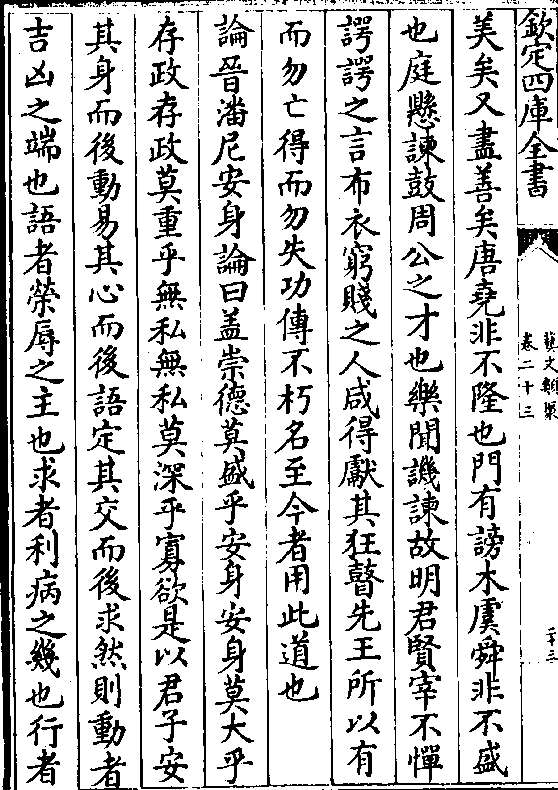 欽定四庫全書
藝文類聚
卷二十三
二十三
美矣又盡善矣唐堯非不隆也門有謗木虞舜非不盛
也庭懸諫鼓周公之才也樂聞譏諫故明君賢宰不憚
諤諤之言布衣窮賤之人咸得獻其狂瞽先王所以有
而勿亡得而勿失功傳不朽名至今者用此道也
論晉潘尼安身論曰盖崇德莫盛乎安身安身莫大乎
存政存政莫重乎無私無私莫深乎寡欲是以君子安
其身而後動易其心而後語定其交而後求然則動者
吉凶之端也語者榮辱之主也求者利病之幾也行者